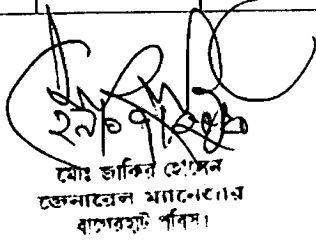 মোঃ জাকির হোসেন
জেনারেল ম্যানেজার
বাগেরহাট পবিস।